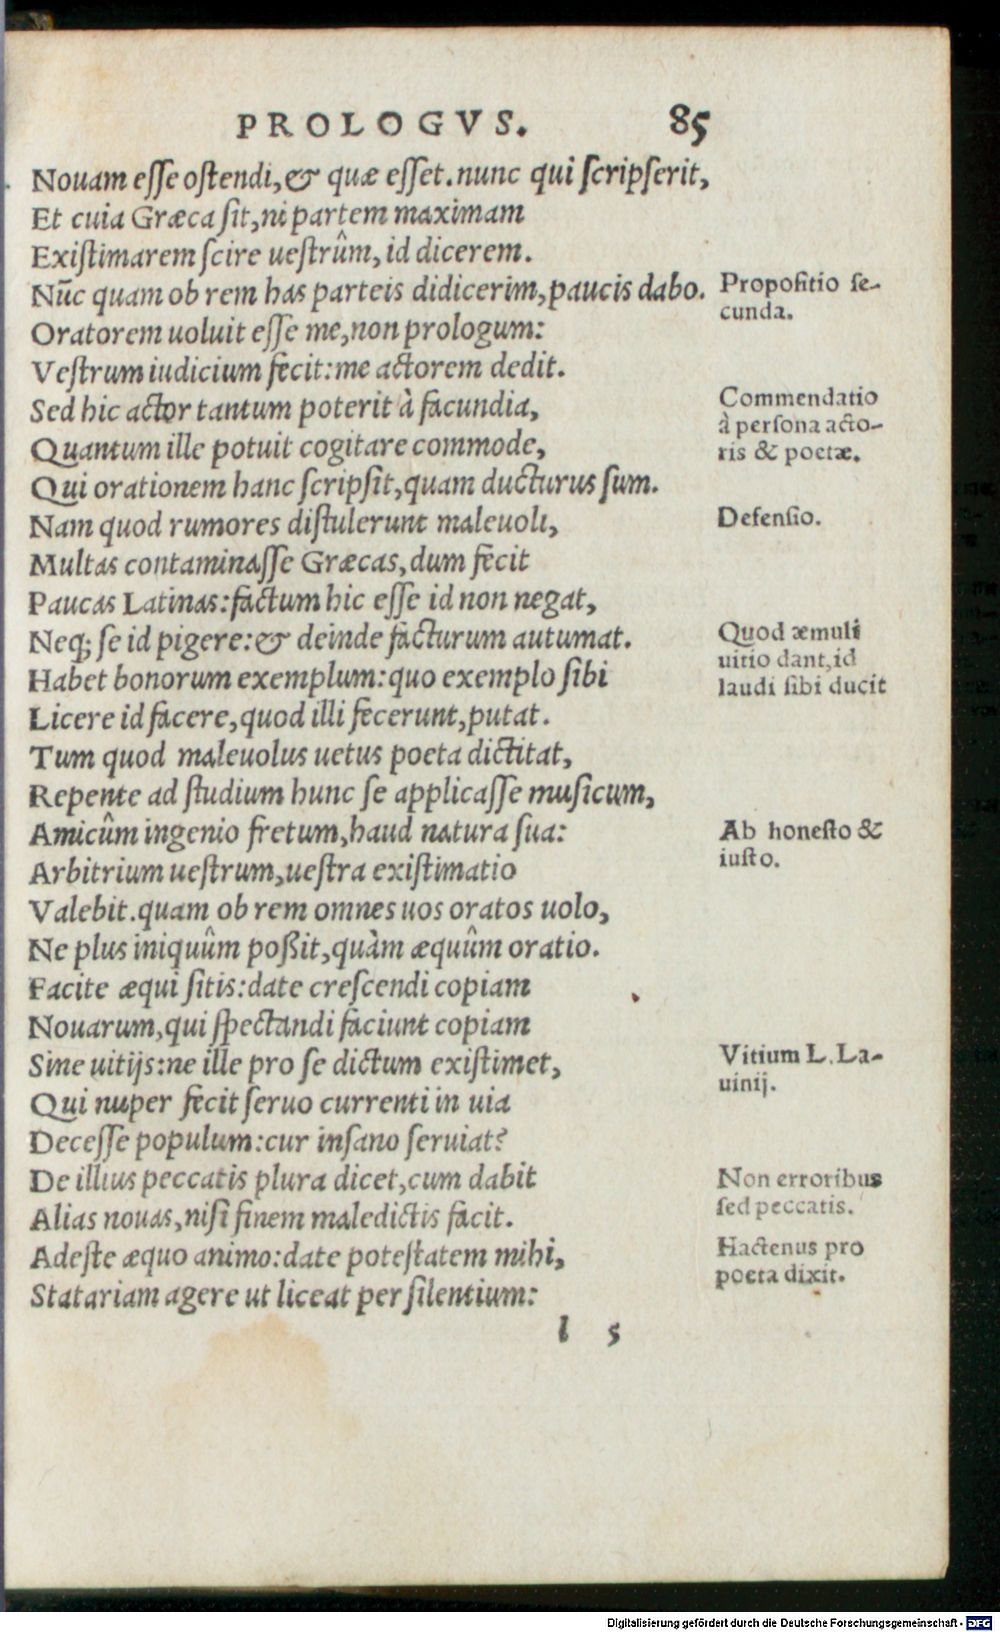 PROLOGVS. 85
Nouam esse ostendi,& quæ esset.nunc qui scripserit,
Et cuia Græca sit,ni partem maximam
Existimarem scire uestrûm,id dicerem.
Nūc quam ob rem has parteis didicerim,paucis dabo.
Propositio se-
cunda.
Oratorem uoluit esse me,non prologum:
Vestrum iudicium fecit:me actorem dedit.
Sed hic actor tantum poterit à facundia,
Commendatio
à persona acto-
ris & poetæ.
Quantum ille potuit cogitare commode,
Qui orationem hanc scripsit,quam ducturus sum.
Nam quod rumores distulerunt maleuoli,
Defensio.
Multas contaminasse Græcas,dum fecit
Paucas Latinas:factum hic esse id non negat,
Neq; se id pigere:& deinde facturum autumat.
Quod æmuli
uitio dant,id
laudi sibi ducit
Habet bonorum exemplum:quo exemplo sibi
Licere id facere,quod illi fecerunt,putat.
Tum quod maleuolus uetus poeta dictitat,
Repente ad studium hunc se applicasse musicum,
Amicûm ingenio fretum,haud natura sua:
Ab honesto &
iusto.
Arbitrium uestrum,uestra existimatio
Valebit.quam ob rem omnes uos oratos uolo,
Ne plus iniquûm poßit,quàm æquûm oratio.
Facite æqui sitis:date crescendi copiam
Nouarum,qui spectandi faciunt copiam
Sine uitijs:ne ille pro se dictum existimet,
Vitium L. La-
uinij.
Qui nuper fecit seruo currenti in uia
Decesse populum:cur insano seruiat?
De illius peccatis plura dicet,cum dabit
Non erroribus
sed peccatis.
Alias nouas,nisi finem maledictis facit.
Adeste æquo animo:date potestatem mihi,
Hactenus pro
poeta dixit.
Statariam agere ut liceat per silentium:
l 5
Digitalisierung gefördert durch die Deutsche Forschungsgemeinschaft - DFG